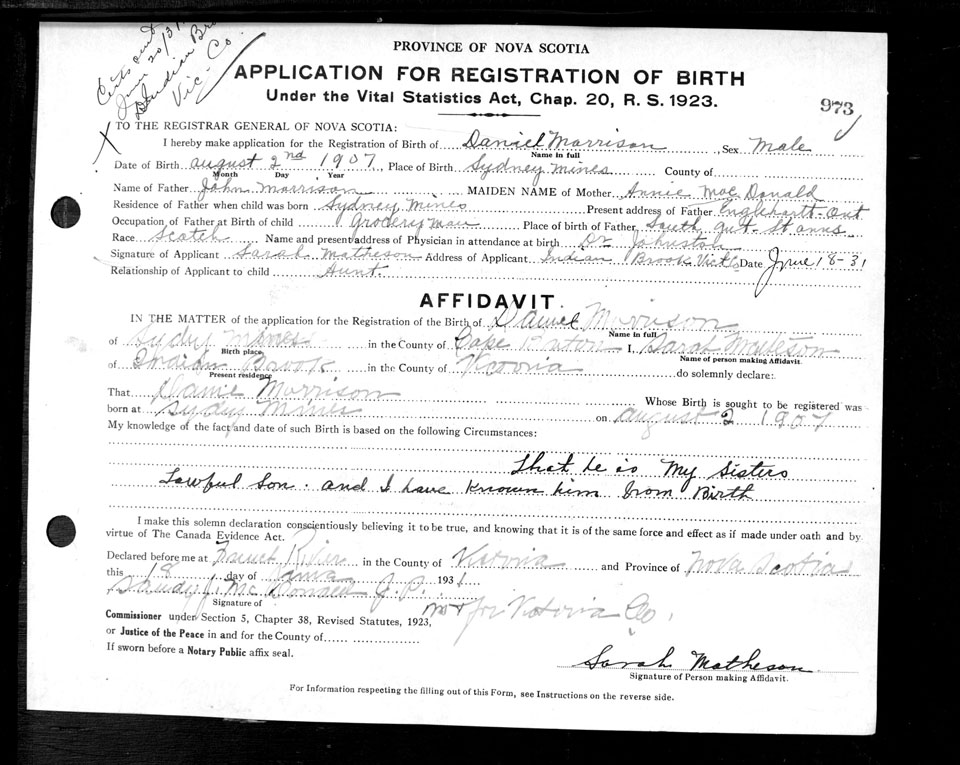 Certs out
June 20/31
Indian Bro
Vic. Co.
PROVINCE OF NOVA SCOTIA
APPLICATION FOR REGISTRATION OF BIRTH
Under the Vital Statistics Act, Chap. 20, R. S. 1923.
973
TO THE REGISTRAR GENERAL OF NOVA SCOTIA:
I hereby make application for the Registration of Birth of Daniel Morrison, Sex Male
Name in full
Date of Birth august 2nd 1907, Place of Birth Sydney mines County of
Month Day Year
Name of Father John Morrison MAIDEN NAME of Mother Annie Mac Donald
Residence of Father when child was born Sydney Mines Present address of Father Englehart-Ont
Occupation of Father at Birth of child Grocery Man Place of birth of Father South gut-St anns
Race Scotch Name and present address of Physician in attendance at birth Dr Johnston
Signature of Applicant Sarah Matheson Address of Applicant Indian Brook Vict Co Date June 18-31
Relationship of Applicant to child Aunt
AFFIDAVIT.
IN THE MATTER of the application for the Registration of the Birth of Daniel Morrison
Name in full
of Sydy Mines in the County of Cape Breton I, Sarah Matheson
Birth place Name of person making Affidavit.
of Indian Brook in the County of Victoria do solemnly declare:
Present residence
That Danie Morrison Whose Birth is sought to be registered was
born at Sydy Mines on august 2 1907
My knowledge of the fact and date of such Birth is based on the following Circumstances:
that he is My Sisters
Lawful Son. and I have known him from Birth
I make this solemn declaration conscientiously believing it to be true, and knowing that it is of the same force and effect as if made under oath and by
virtue of The Canada Evidence Act.
Declared before me at French River in the County of Victoria and Province of Nova Scotia
this 18 day of June 1931
Sandy J. Mc Donald J. P.
Signature of
Commissioner under Section 5, Chapter 38, Revised Statutes, 1923,
for Victoria Co,
or Justice of the Peace in and for the County of
If sworn before a Notary Public affix seal.
Sarah Matheson
Signature of Person making Affidavit.
For Information respecting the filling out of this Form, see Instructions on the reverse side.